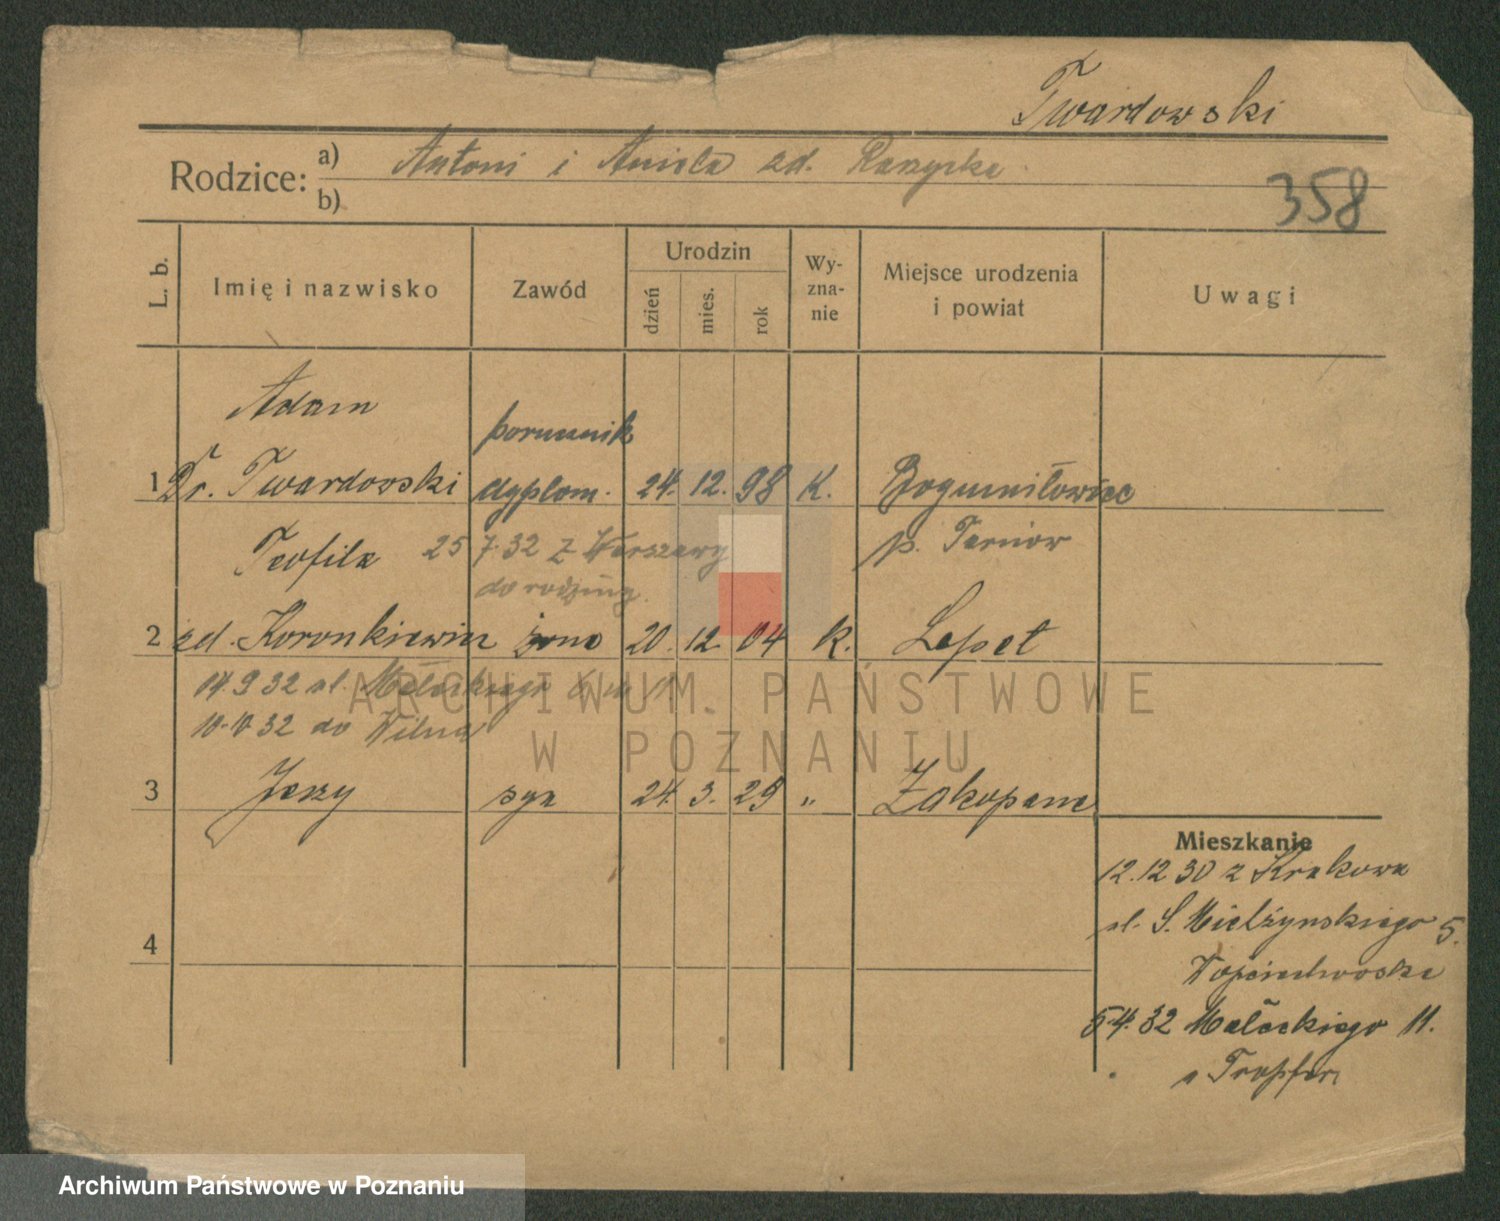 Twardowski
Rodzice: a) Antoni i Aniela zd.
b)
358
L. b.
Imię i nazwisko
Zawód
Urodzin
dzień
mies.
rok
Wy-
zna-
nie
Miejsce urodzenia
i powiat
Uwagi
Adam
porucznik
1 Dr. Twardowski dyplom. 24. 12. 98 K. Bogumiłowice
p. Tarnów
Teofila 25 7.32 z Warszawy
do rodziny.
2 zd. Koronkiewicz żona 20. 12. 04 k. Lepet
14.9 32 ul. Małeckiego 11
10.10 32 do Wilna
3 Jerzy syn 24. 3. 29 " Zakopane
4
Mieszkanie
12.12 30 z Krakowa
ul. S. Mielżyńskiego 5.
Wojciechowska
5.4. 32 Małeckiego 11.
ARCHIWUM PAŃSTWOWE
W POZNANIU
Archiwum Państwowe w Poznaniu